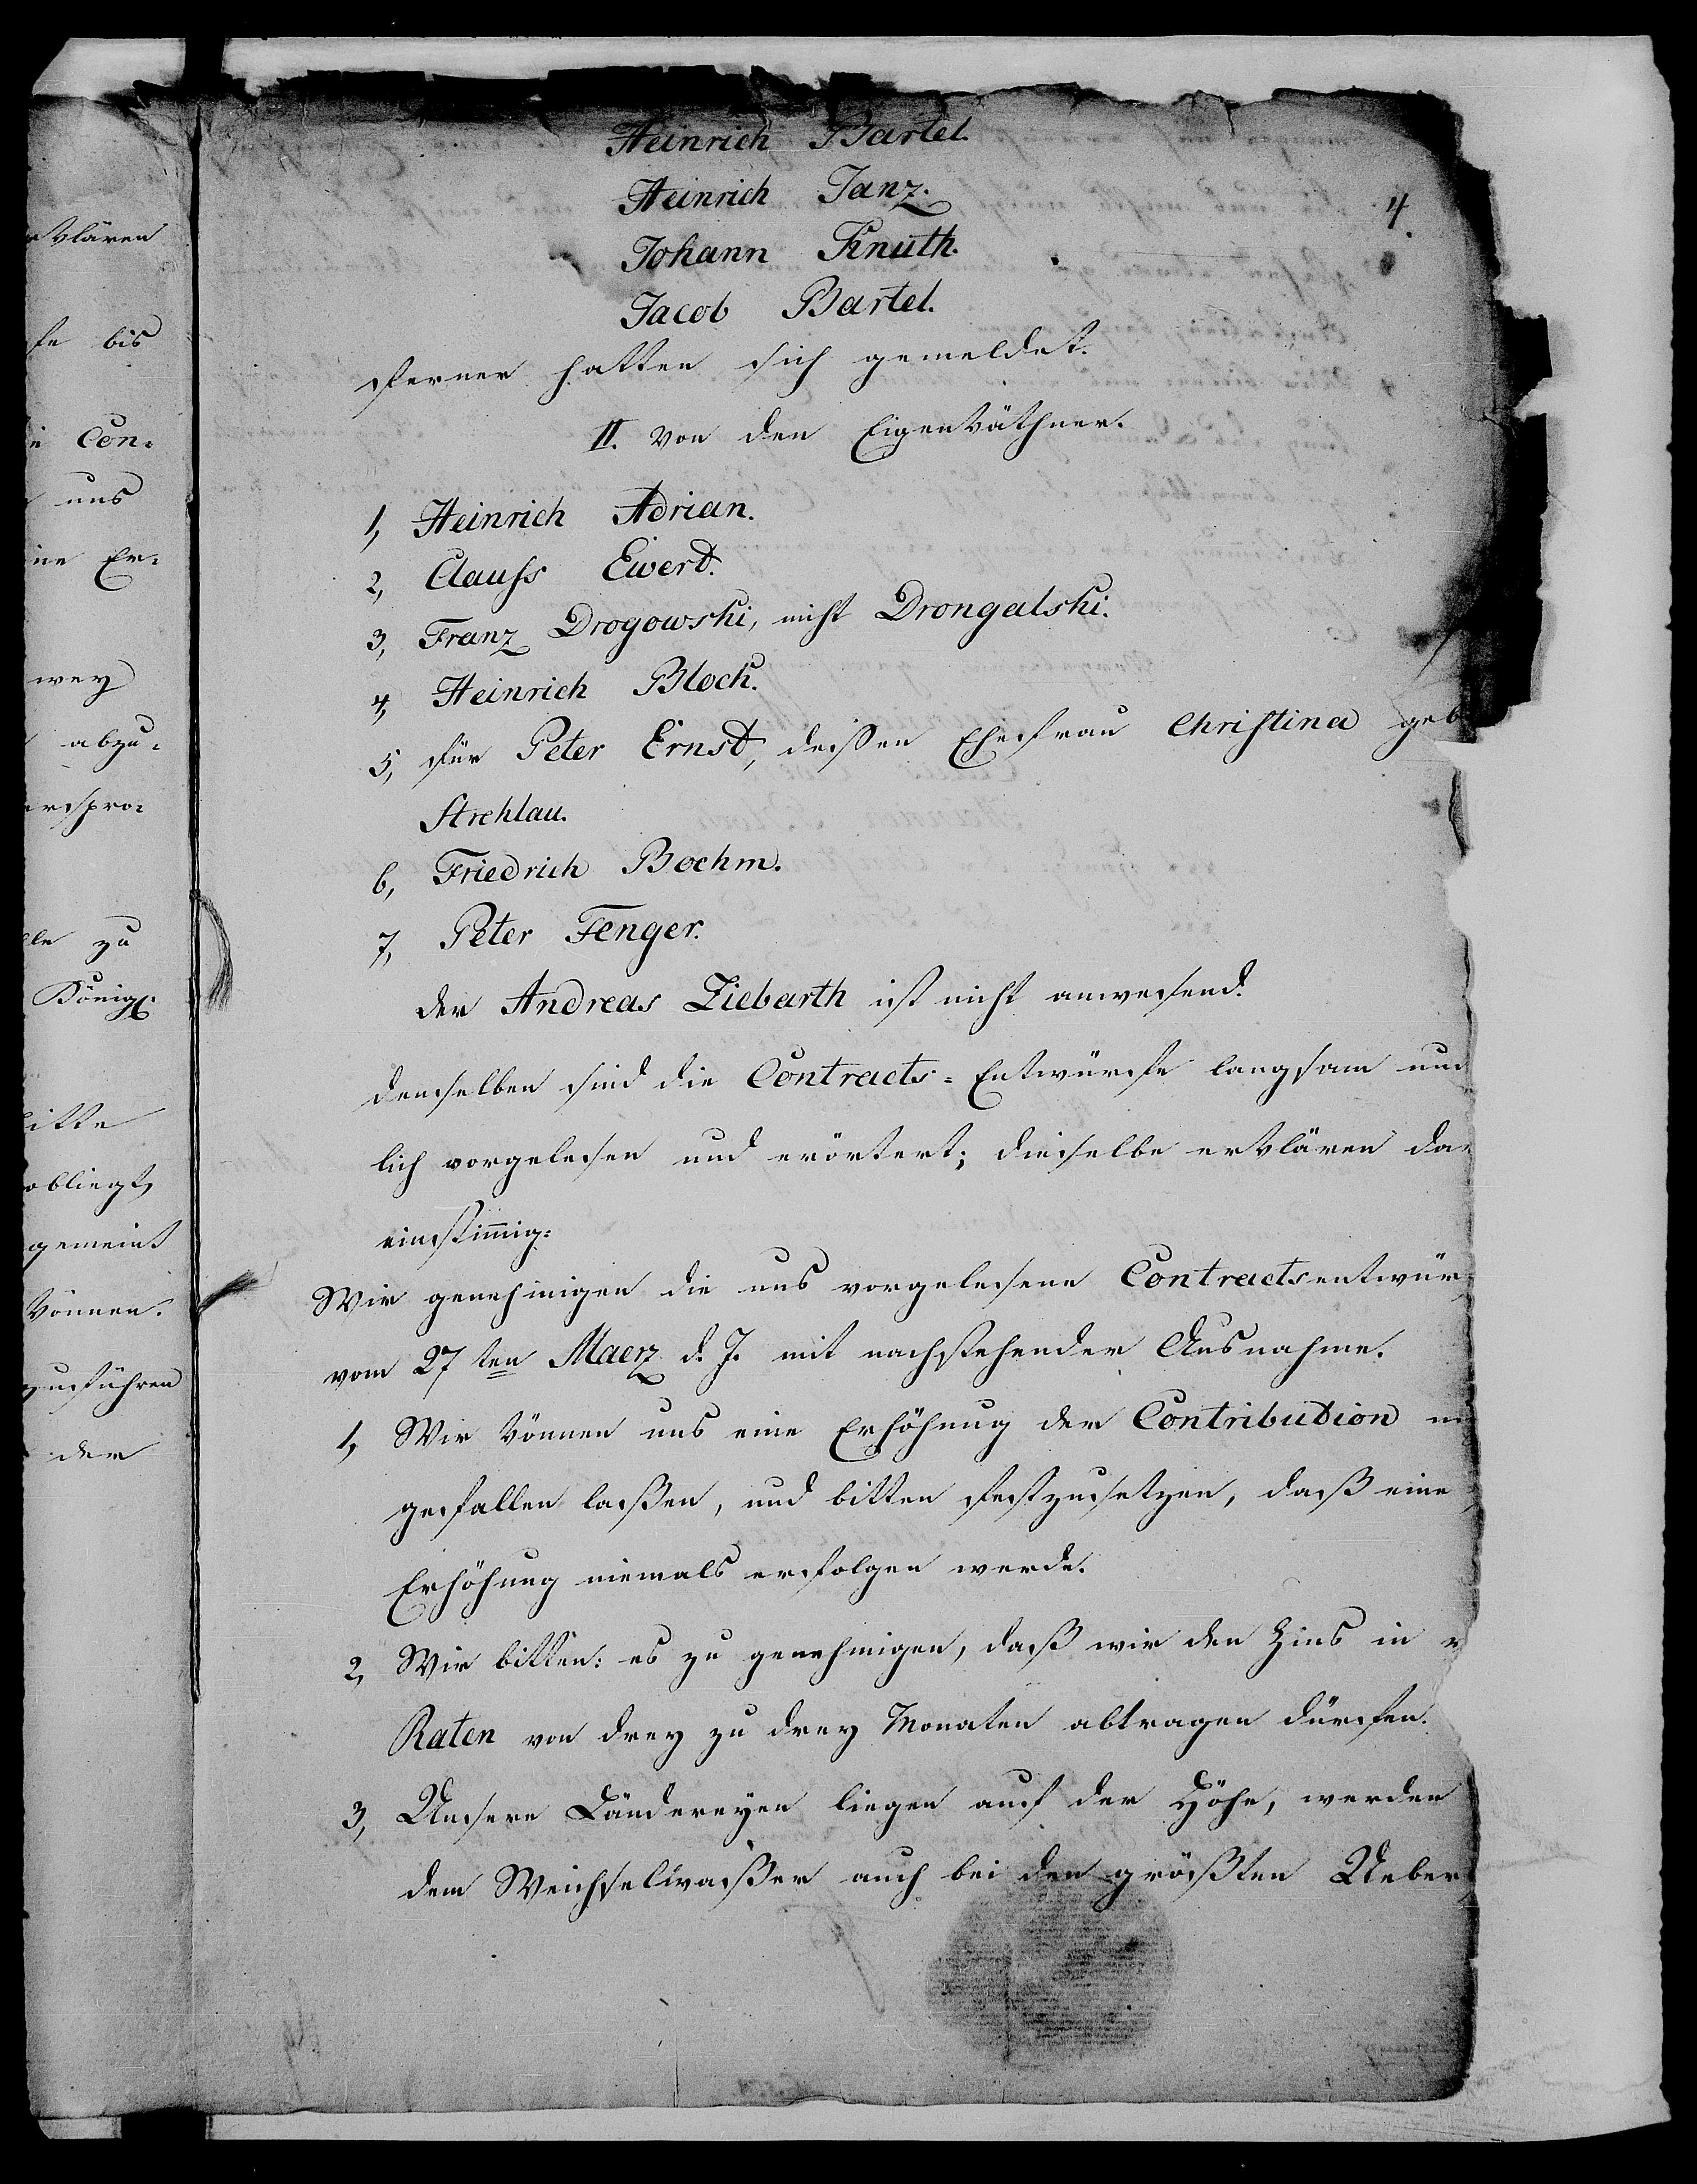 rklären
fe bis
ie Con-
uns
ine Er-
wey
abzu-
erspro-
lle zu
Königl.
itte
obliegt,
gemeint
können.
zuführen
der
4.
Heinrich Bartel.
Heinrich Janz.
Johann Knuth.
Jacob Bartel.
ferner hatten sich gemeldet.
II. von den Eigenkäthner.
1, Heinrich Adrian.
2, Clauss Ewert.
3, Franz Drogowski, nicht Drongalski.
4, Heinrich Block.
5, für Peter Ernst, dessen Ehefrau Christina geb
Strehlau.
6, Friedrich Boehm.
7, Peter Fenger.
der Andreas Ziebarth ist nicht anwesend.
denselben sind die Contracts-Entwürfe langsam und
lich vorgelesen und erörtert; dieselbe erklären da-
einstimmig:
Wir genehmigen die uns vorgelesene Contractsentwür-
vom 27ten Maerz d. J. mit nachstehender Ausnahme.
1, Wir können uns eine Erhöhung der Contribution ni
gefallen laßen, und bitten festzusetzen, daß eine
Erhöhung niemals erfolgen werde.
2, Wir bitten: es zu genehmigen, daß wir den Zins in
Raten von drey zu drey Monaten abtragen dürfen.
3, Unsere Ländereyen liegen auf der Höhe, werden
dem Weichselwaßer auch bei den größten Ueber